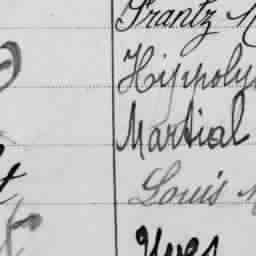 Frantz
Hippoly
Martial
Louis
Yves